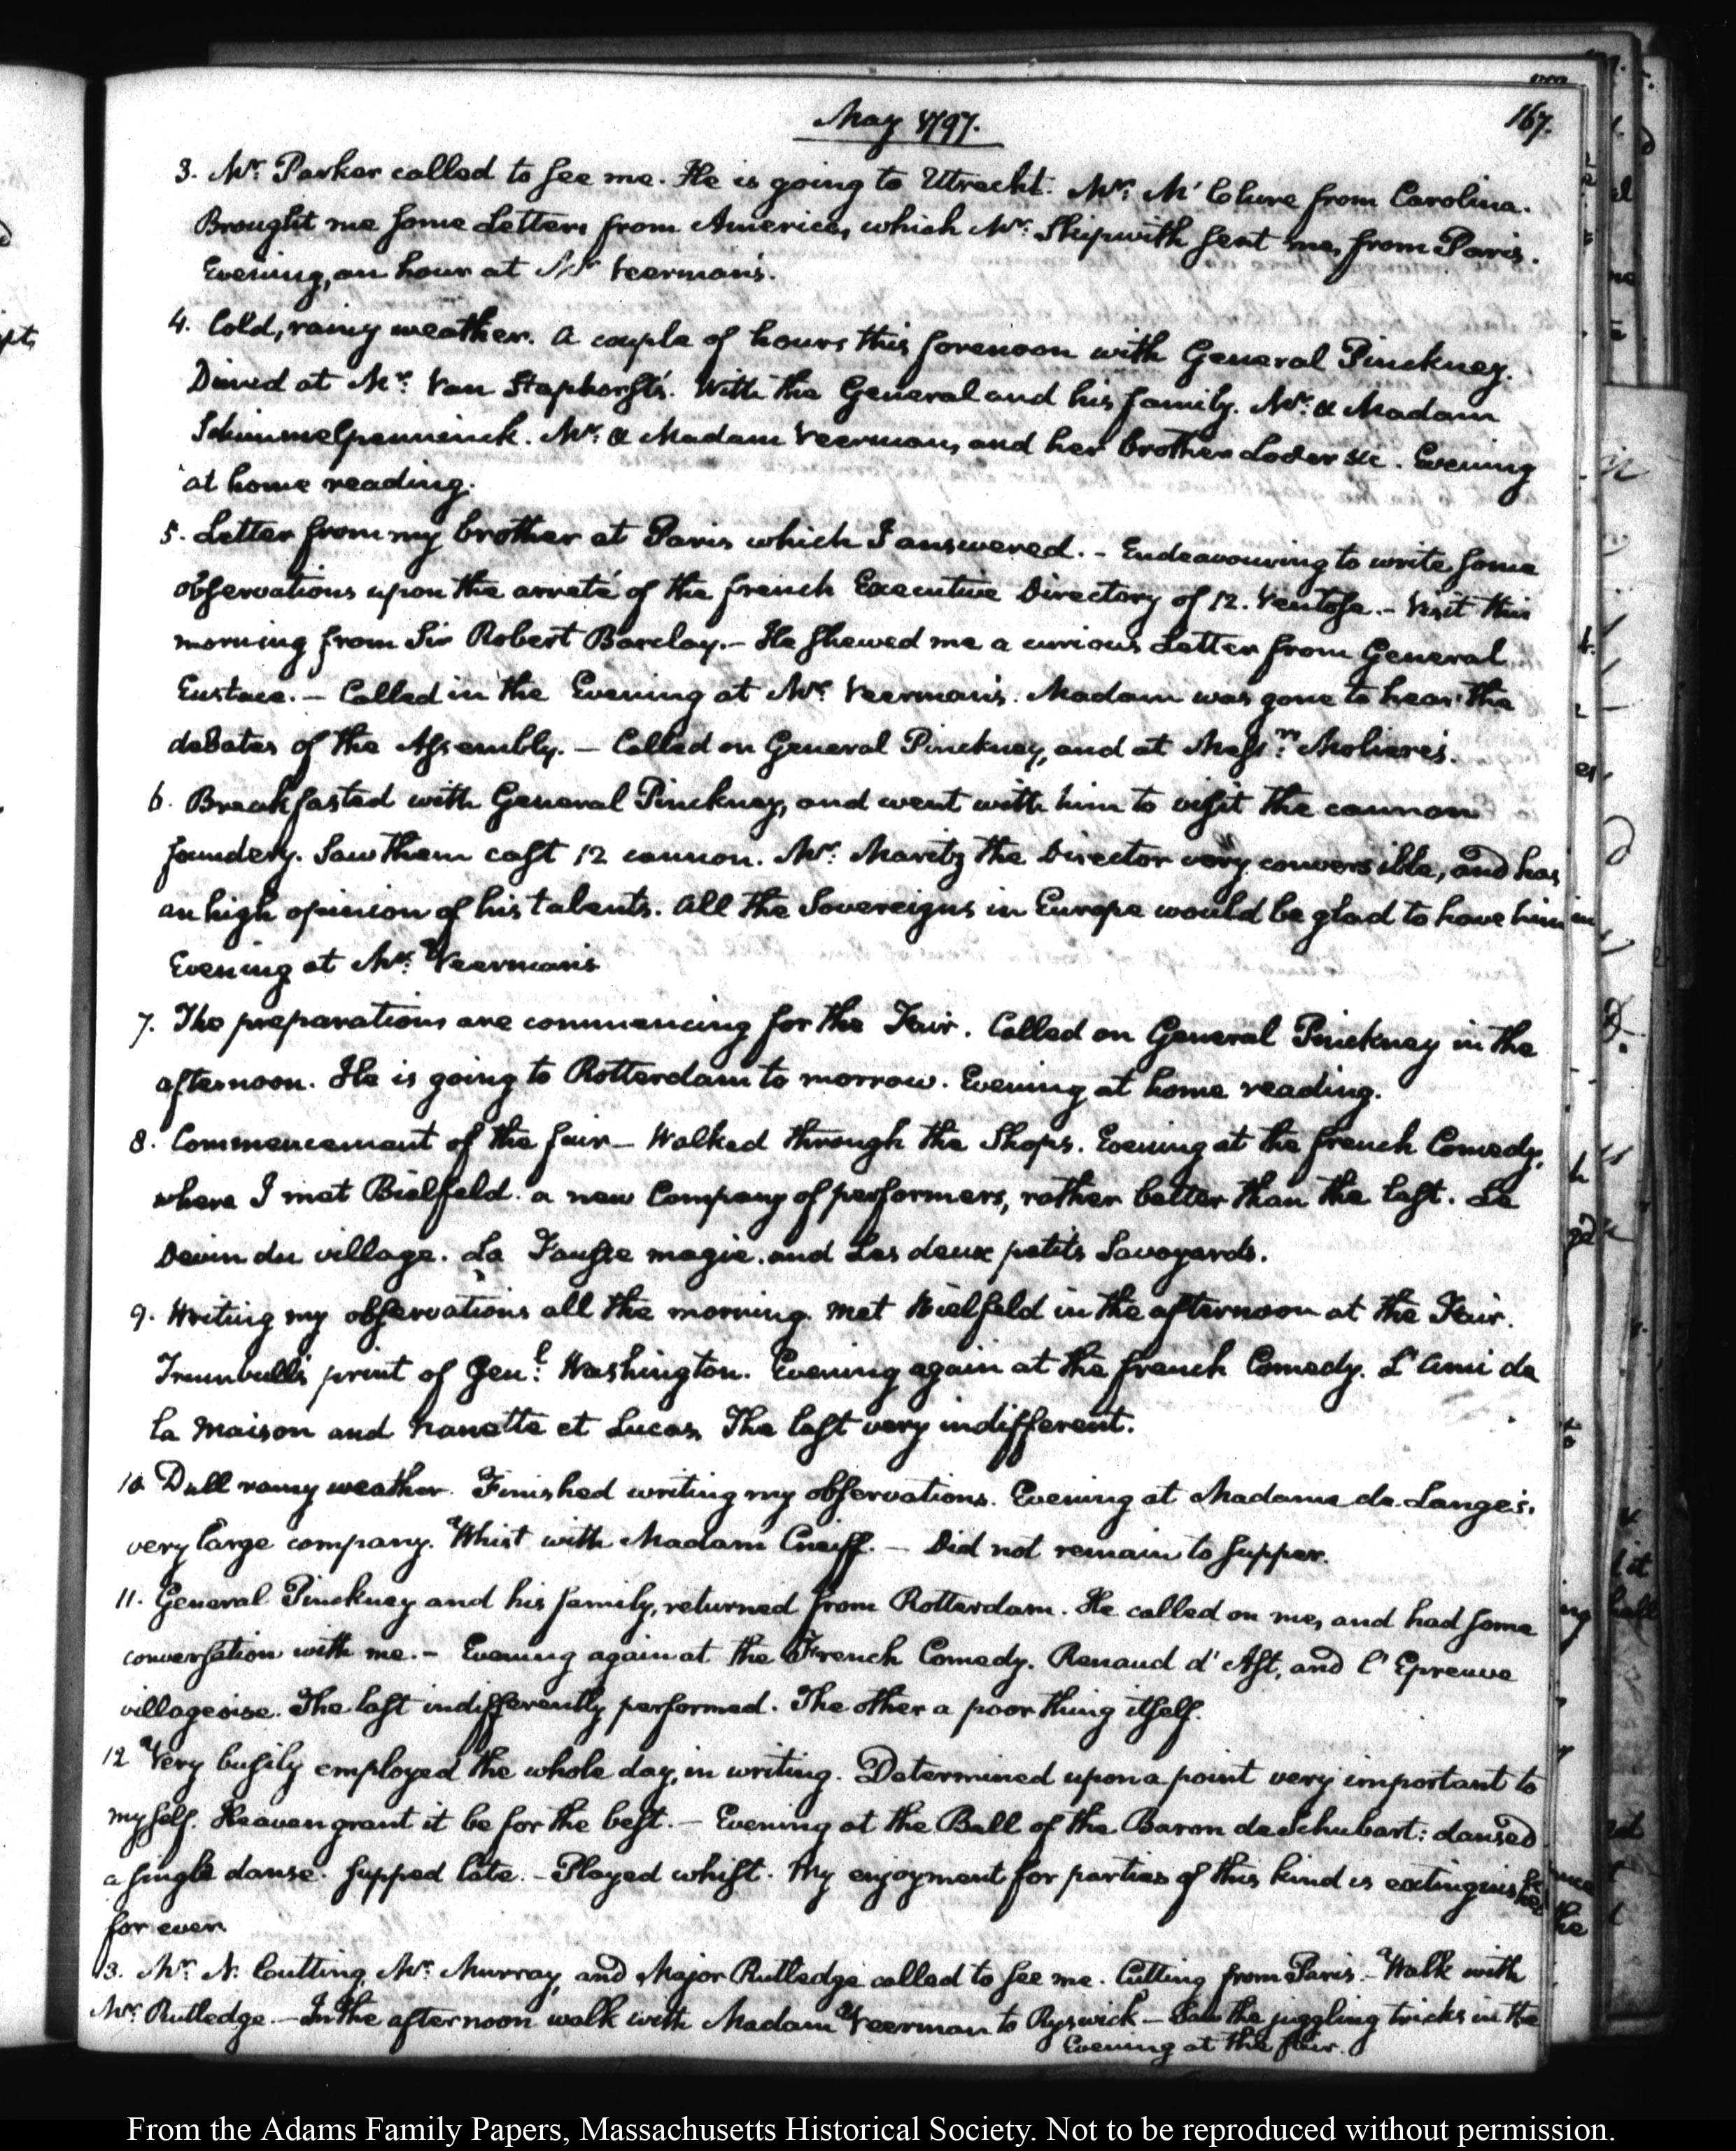 May 1797.
167.
3. Mr. Parker called to see me. He is going to Utrecht. Mr. M'Clure from Carolina.
Brought me some Letters from America, which Mr. Skipwith sent me, from Paris.
Evening, an hour at Mr Veerman's.
4. Cold, rainy weather. A couple of hours this forenoon with General Pinckney.
Dined at Mr. Van Staphorst's. With the General and his family. Mr. & Madam
Schimmelpenninck. Mr. & Madam Veerman, and her brother Loder &c. Evening
at home reading.
5. Letter from my brother at Paris which I answered. – Endeavouring to write some
observations upon the arreté of the french Executive Directory of 12. Ventose. – Visit this
morning from Sir Robert Barclay. – He shewed me a curious Letter from General
Eustace. – Called in the Evening at Mr. Veerman's. Madam was gone to hear the
debates of the Assembly. – Called on General Pinckney, and at Messrs. Moliere's.
6. Breakfasted with General Pinckney, and went with him to visit the cannon
foundery. Saw them cast 12 cannon. Mr. Maritz the Director very conversible, and has
an high opinion of his talents. All the Sovereigns in Europe would be glad to have him
Evening at Mr. Veerman's
7. The preparations are commencing for the Fair. Called on General Pinckney in the
afternoon. He is going to Rotterdam to morrow. Evening at home reading.
8. Commencement of the fair – Walked through the Shops. Evening at the french Comedy,
where I met Bielfeld. a new Company of performers, rather better than the last. Le
Devin du village. La Fausse magie. and Les deux petits Savoyards.
9. Writing my observations all the morning. Met Bielfeld in the afternoon at the Fair.
Trumbull's print of Genl. Washington. Evening again at the french Comedy. L'Ami de
la Maison and Nanette et Lucas, The last very indifferent.
10 Dull rainy weather. Finished writing my observations. Evening at Madame de Lange's.
very large company. Whist with Madam Cneiff. – Did not remain to supper.
11. General Pinckney and his family, returned from Rotterdam. He called on me, and had some
conversation with me. – Evening again at the French Comedy. Renaud d'Ast, and l'Epreuve
villageoise. The last indifferently performed. The other a poor thing itself.
12 Very busily employed the whole day, in writing. Determined upon a point very important to
myself. Heaven grant it be for the best. – Evening at the Ball of the Baron de Schubart: dansed
a single danse. Supped late. – Played whist. My enjoyment for parties of this kind is extinguished
for ever.
13. Mr. N. Cutting, Mr. Murray, and Major Rutledge called to see me. Cutting from Paris. – Walk with
Mr. Rutledge. – In the afternoon walk with Madam Veerman to Ryswick – Saw the juggling tricks in the
Evening at the fair.
From the Adams Family Papers, Massachusetts Historical Society. Not to be reproduced without permission.